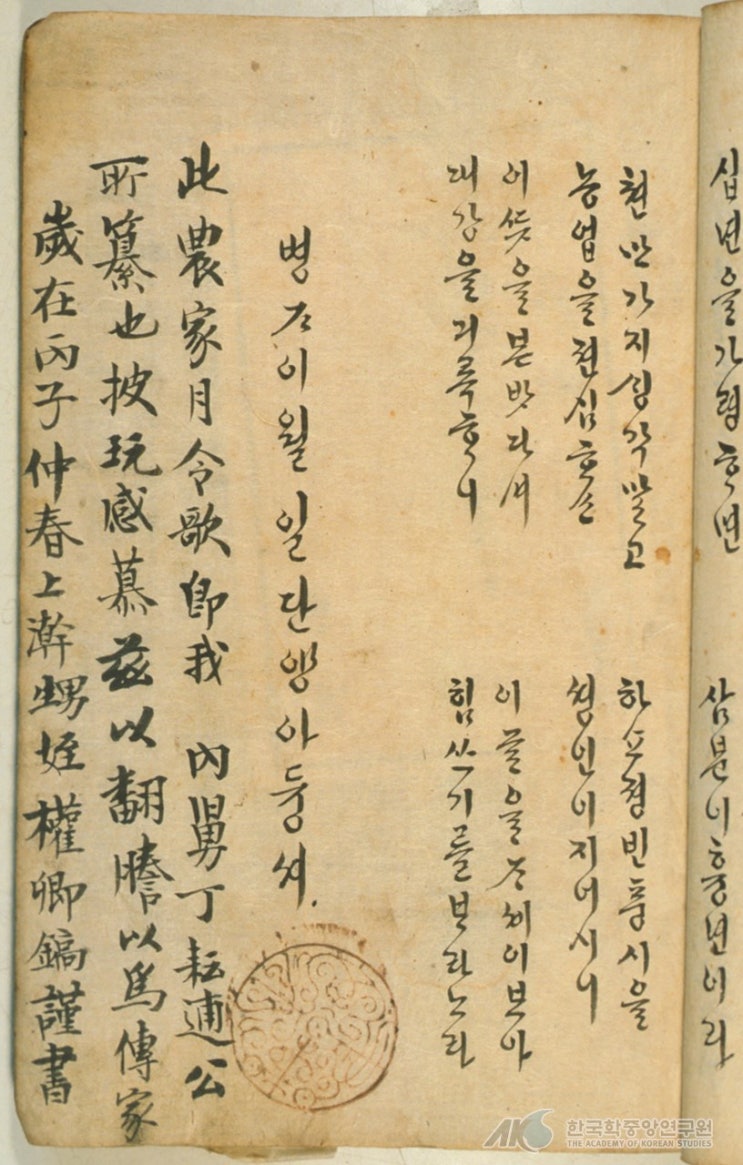 십년을가령ᄒᆞ면
삼분이흉년이라
쳔만가지ᄉᆡᆼ각말고
농업을젼심ᄒᆞ소
하소졍빈풍시을
셩인이지어시니
이ᄯᅳᆺ을본밧다셔
대강을긔록ᄒᆞ니
이글을ᄌᆞ셰이보아
힘쓰기를ᄇᆞ라노라
병ᄌᆞ이월일단양아듕셔.
此農家月令歌卽我 內舅丁耘逋公
所纂也披玩感慕玆以翻謄以爲傳家
歲在丙子仲春上澣甥姪權卿鎬謹書
AKS 한국학중앙연구원
THE ACADEMY OF KOREAN STUDIES